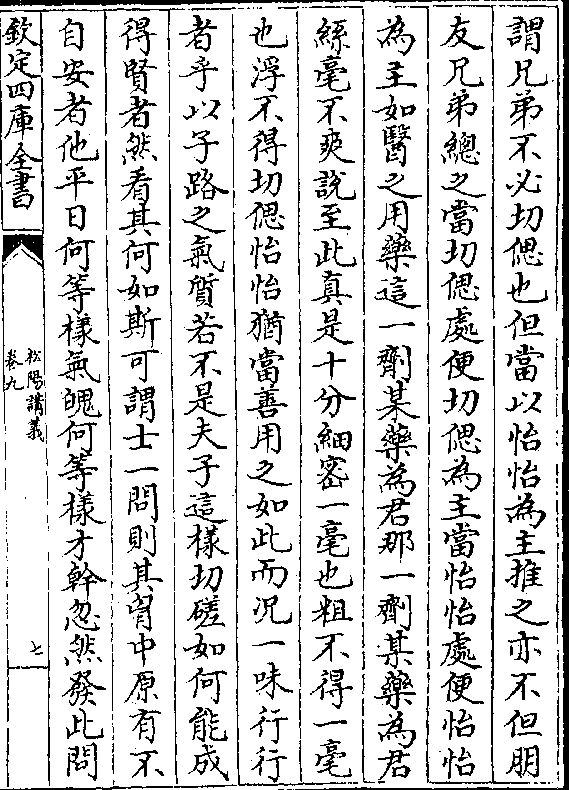 謂兄弟不必切偲也但當以怡怡為主推之亦不但朋
友兄弟總之當切偲處便切偲為主當怡怡處便怡怡
為主如醫之用藥這一劑某藥為君那一劑某藥為君
絲毫不爽說至此真是十分細密一毫也粗不得一毫
也浮不得切偲怡怡猶當善用之如此而况一味行行
者乎以子路之氣質若不是夫子這樣切磋如何能成
得賢者然看其何如斯可謂士一問則其胷中原有不
自安者他平日何等樣氣魄何等樣才幹忽然發此問
欽定四庫全書
松陽講義
卷九
七